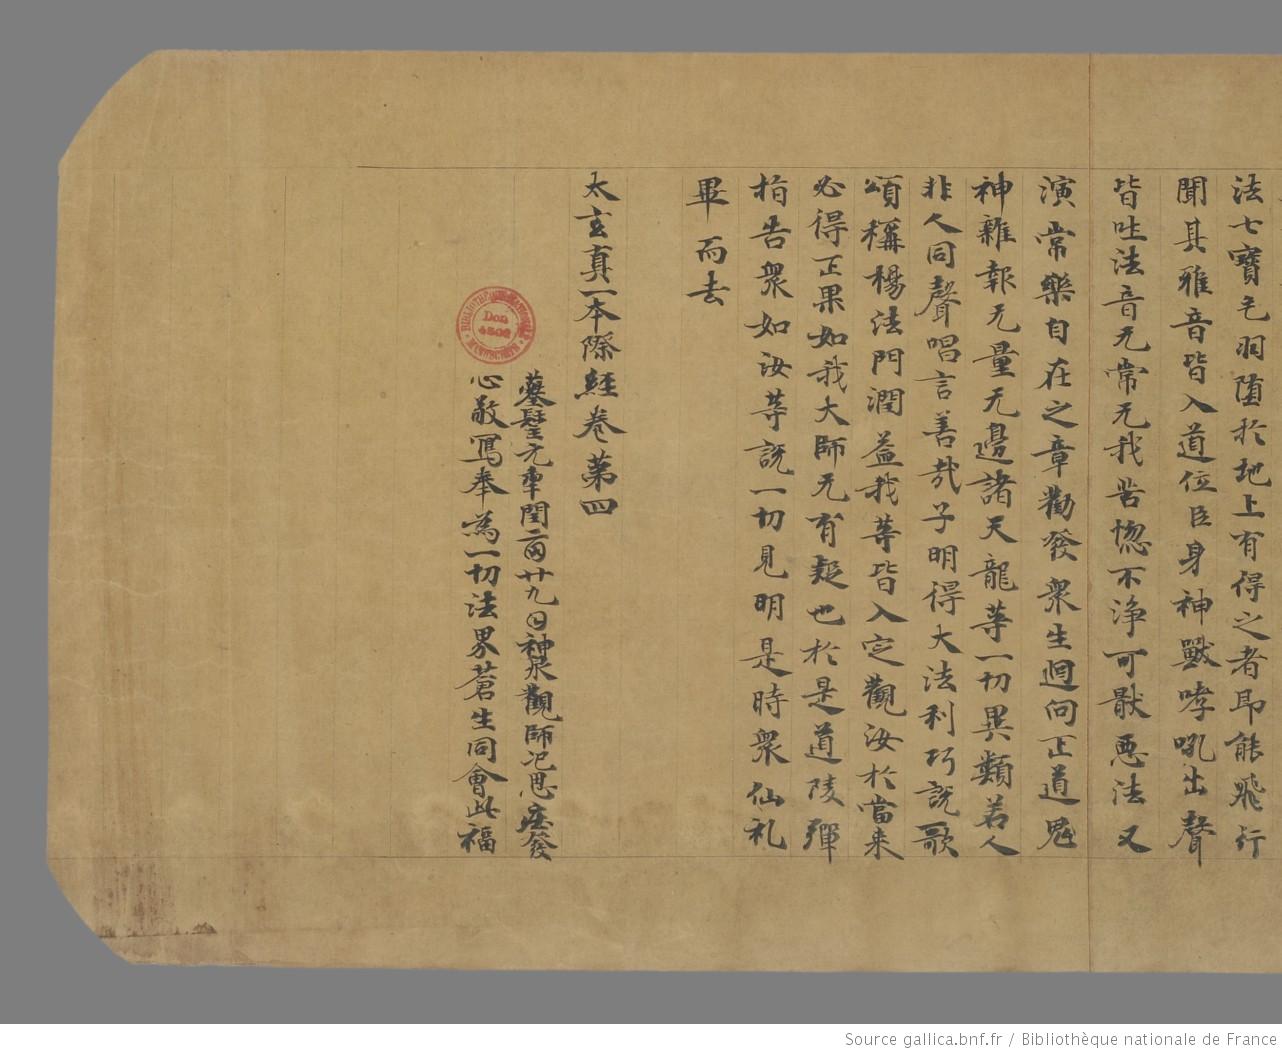 法七寶毛羽墮於地上有得之者即能飛行
聞其雅音皆入道位臣身神獸哮吼出聲
皆吐法音无常无我苦惚不淨可猒惡法又
演常樂自在之章勸發衆生迴向正道鬼
神雜報无量无邊諸天龍等一切異類若人
非人同聲唱言善哉子明得大法利巧說歌
頌稱楊法門潤益我等皆入定觀汝於當来
必得正果如我大師无有疑也於是道陵彈
指告衆如汝等說一切見明是時衆仙礼
畢而去
太玄真一本際經卷第四
元年閏二月廿九日神泉觀師氾思莊發
心敬寫奉為一切法界蒼生同會此福
BIBLIOTHÈQUE NATIONALE
Don 4502
MANUSCRITS
Source gallica.bnf.fr / Bibliothèque nationale de France